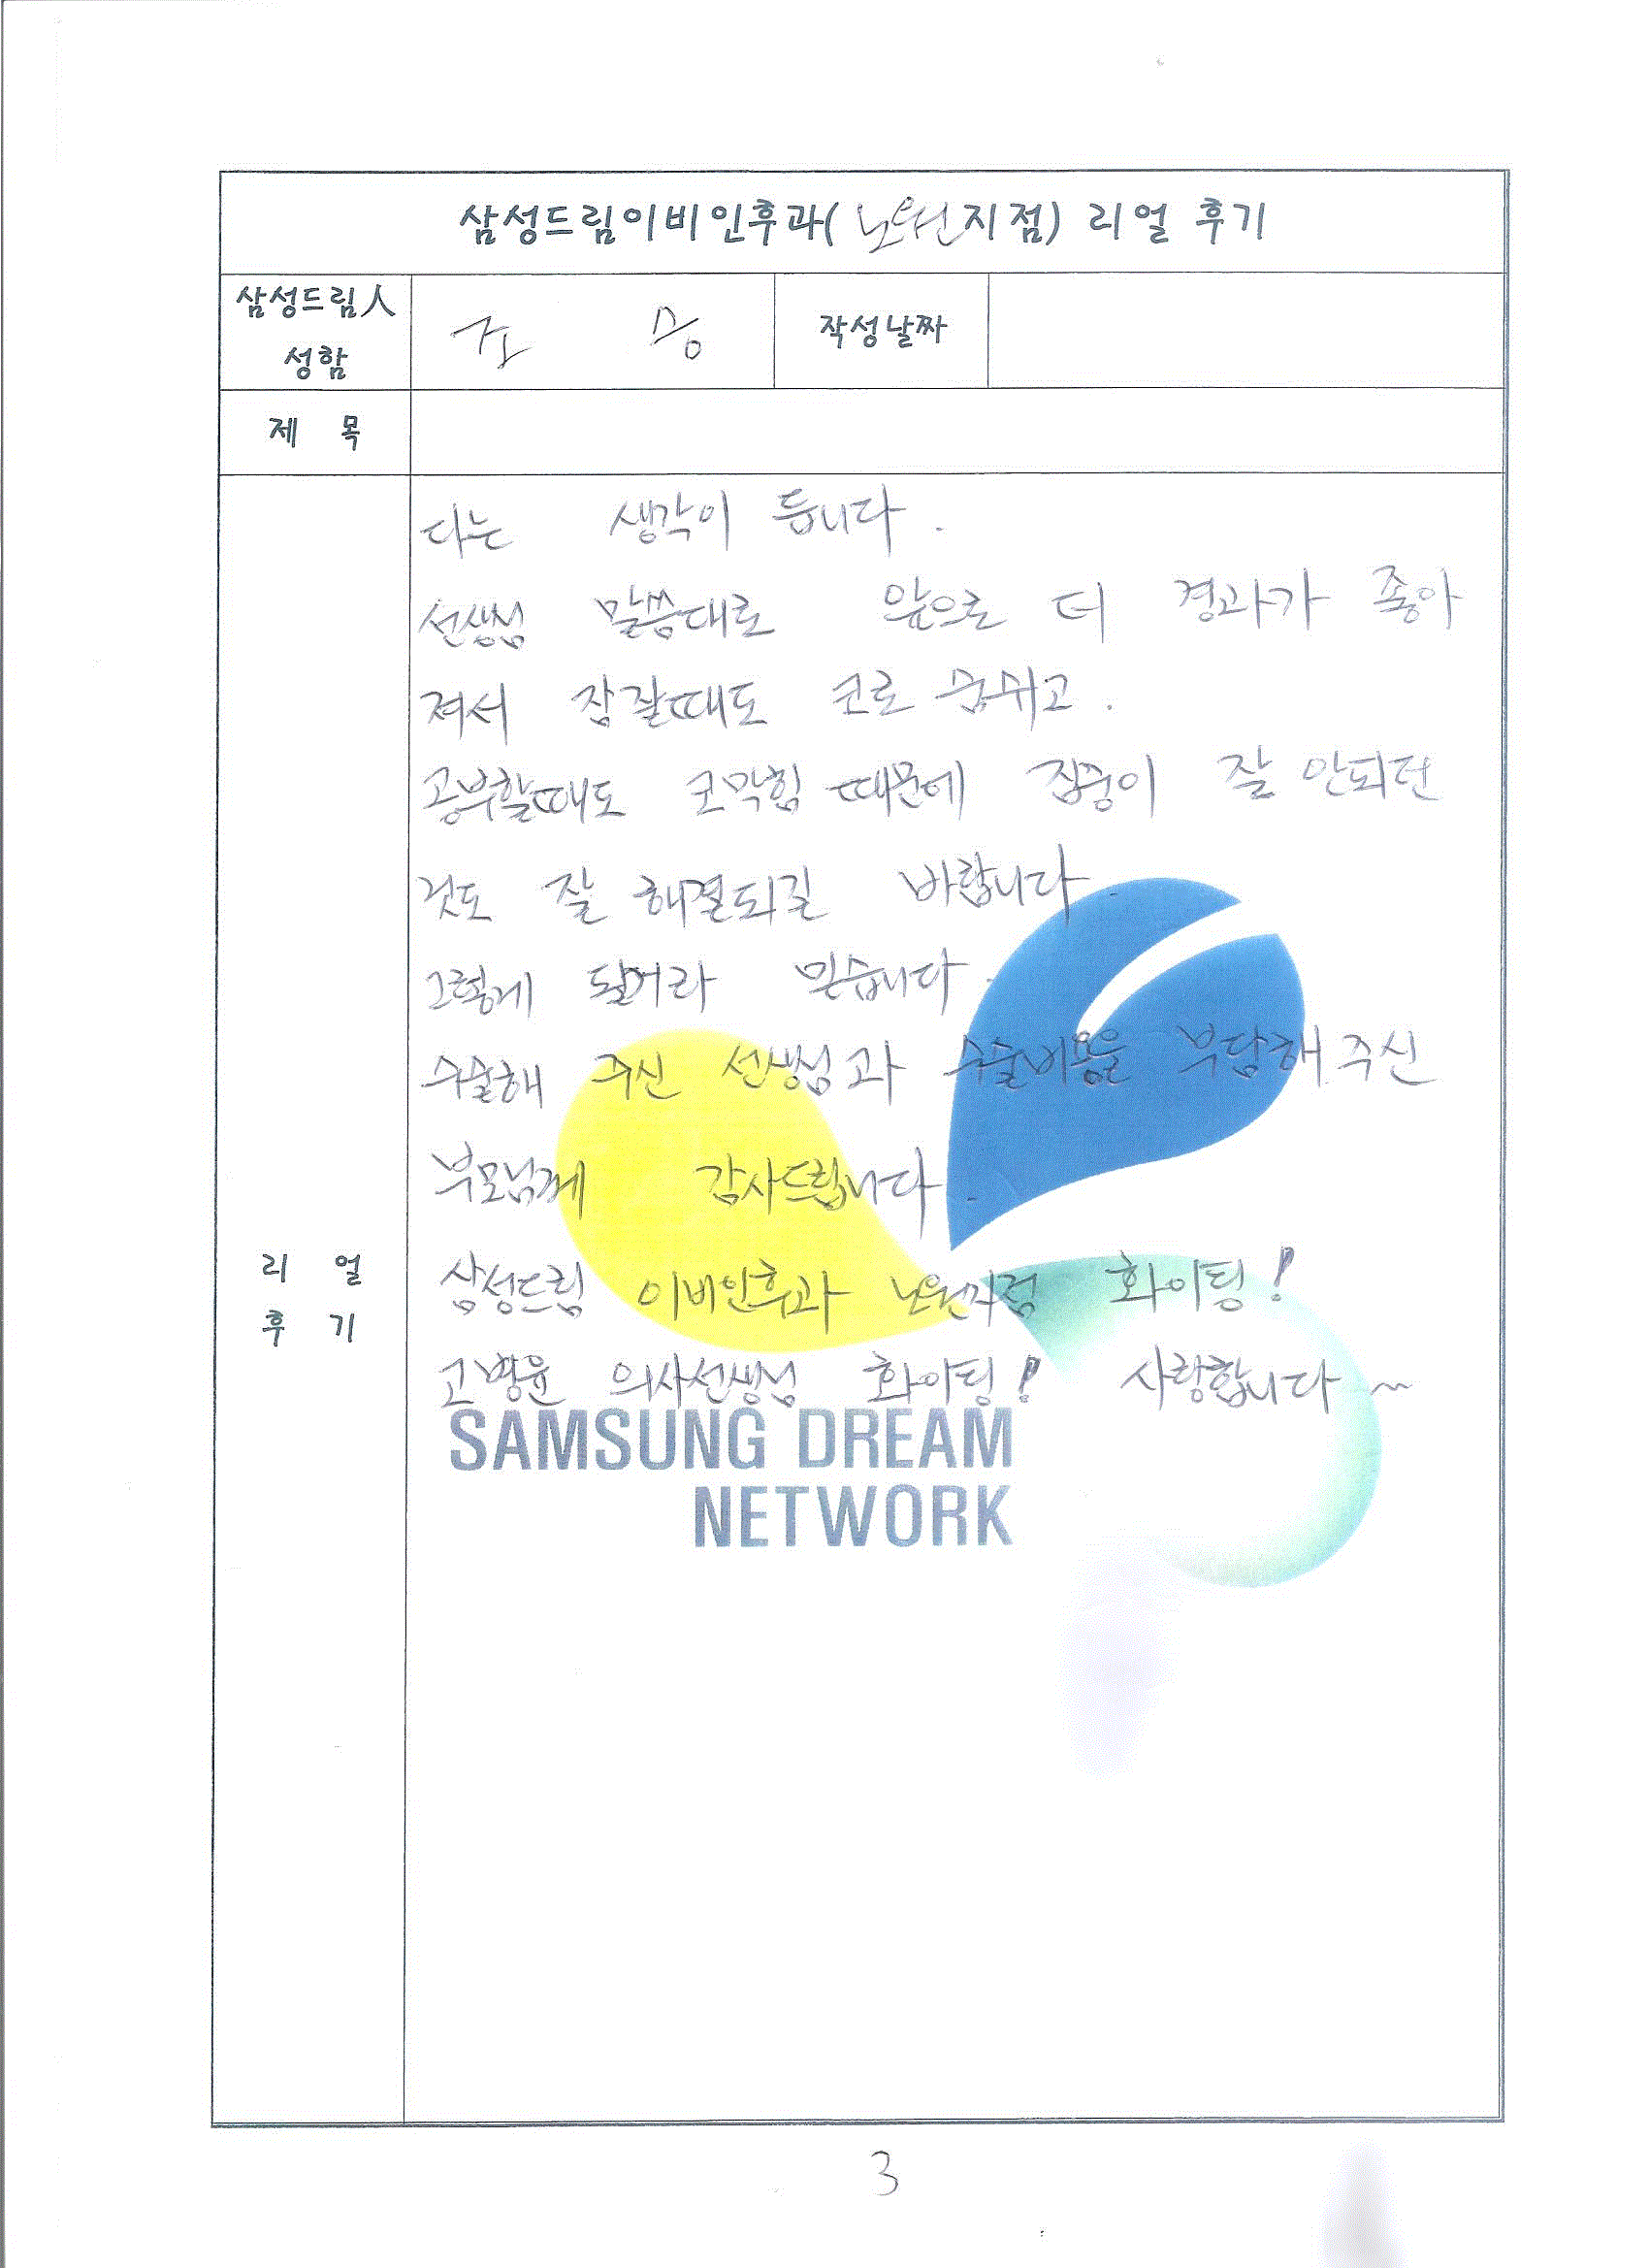 삼성드림이비인후과(노원지점) 리얼 후기
삼성드림人 성함
조 승
작성날짜
제 목
다는 생각이 듭니다.
선생님 말씀대로 앞으로 더 경과가 좋아
져서 잠잘때도 코로 숨쉬고.
공부할때도 코막힘 때문에 집중이 잘 안되던
것도 잘 해결되길 바랍니다.
그렇게 될거라 믿습니다.
수술해 주신 선생님과 수술비용을 부담해 주신
부모님께 감사드립니다.
리 얼
후 기
삼성드림 이비인후과 노원지점 화이팅!
고병윤 의사선생님 화이팅! 사랑합니다~
SAMSUNG DREAM
NETWORK
3